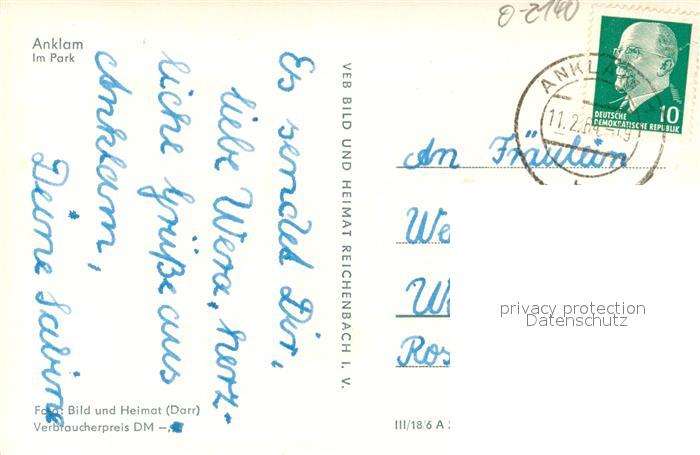 Anklam
Im Park
Es sendet Dir,
liebe Wera, herz-
liche Grüße aus
Anklam,
Deine Sabine
Foto: Bild und Heimat (Darr)
Verbraucherpreis DM –,
VEB BILD UND HEIMAT REICHENBACH I. V.
O-2140
ANKLAM
11.2.64.-19
10
DEUTSCHE
DEMOKRATISCHE REPUBLIK
An Fräulein
We
W
Ros
privacy protection
Datenschutz
III/18/6 A